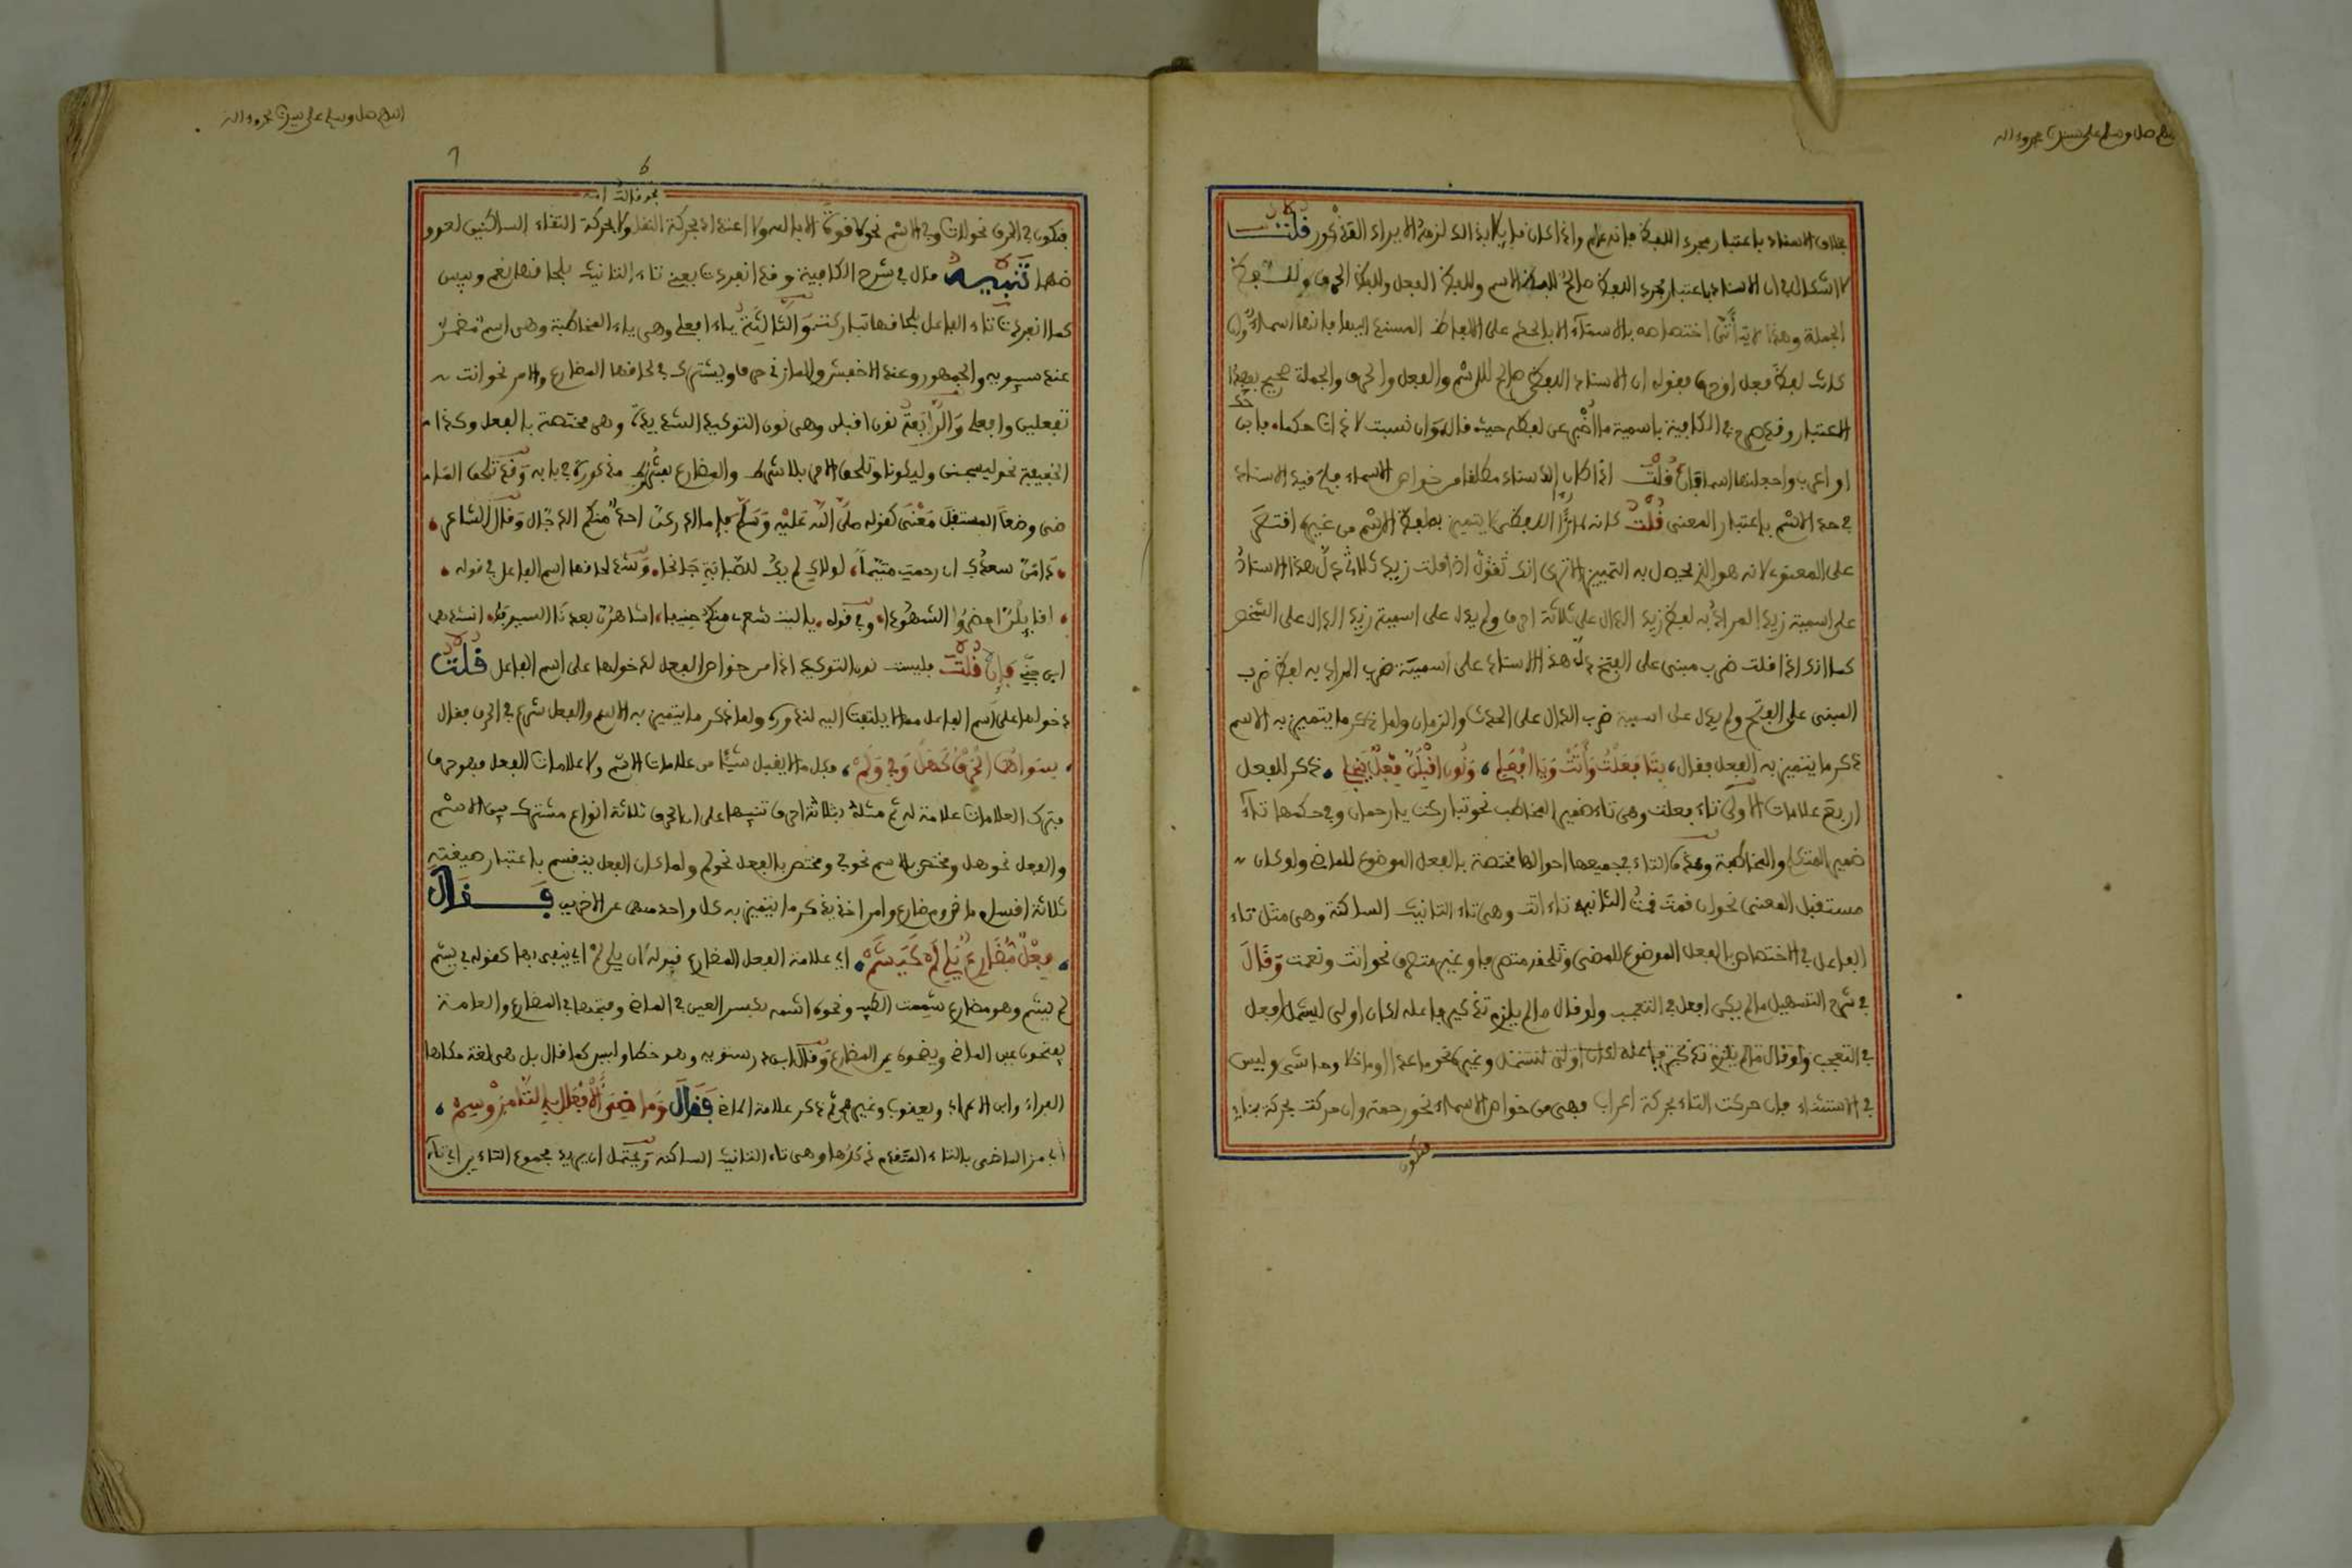 اللهم صل وسلم على سيدنا محمد وءاله
بخلاف الاسناد باعتبار مجرد اللفظ فإنه عام واذا كان فيلابذالك لزمه الايراد القذكور قلت
لا اشكال في ان الاسناد باعتبار مجرد اللفظ صالح للفظ الاسم وللفظ الفعل وللفظ الحرف وللفظ
الجملة وهذا لا يتأتى اختصاصه بالاسماء الا بالحكم على الالفاظ المسند اليها بانها اسماء وان
كانت لفظ فعل او حرف فقوله ان الاسناد اللفظي صالح للاسم والفعل والحرف والجملة صحيح بهذا
الاعتبار وقد صرح في الكافية باسمية ما اخبر عن لفظه حيث قال وان نسبت لاداة حكما فابن
او اعرب واجعلنها اسما فإن قلت اذا كان الاسناد مطلقا من خواص الاسماء فلم قيد الاسناد
في حد الاسم باعتبار المعنى قلت كانه لما رأى اللفظي لا يتميز بلفظ الاسم من غيره اقتصر
على المعنوي لانه هو الذي يحصل به التمييز الا ترى انك تقول اذا قلت زيد ثلاثي دل هذا الاسناد
على اسمية زيد المراد به لفظ زيد الدال على ثلاثة احرف ولم يدل على اسمية زيد الدال على الشخص
كما انك اذا قلت ضرب مبني على الفتح دل هذا الاسناد على اسمية ضرب المراد به لفظ ضرب
المبني على الفتح ولم يدل على اسمية ضرب الدال على الحدث والزمان ولما ذكر ما يتميز به الاسم
ذكر ما يتميز به الفعل فقال، بتا فعلت وأتت ويا افعلي، ونون اقبلن فعل ينجلي، ذكر للفعل
اربع علامات الاولى تاء فعلت وهي تاء ضمير المخاطب نحو تباركت يا رحمان وفي حكمها تاء
ضمير المتكلم والمخاطبة وهذه التاء بجميع احوالها مختصة بالفعل الموضوع للماضي ولو كان
مستقبل المعنى نحو ان قمت قمت الثانية تاء اتت وهي تاء التانيث الساكنة وهي مثل تاء
الفاعل في الاختصاص بالفعل الموضوع للمضي وتلحقه متصرفا وغير متصرف نحو اتت ونعمت وقال
في شرح التسهيل ما لم يكن افعل في التعجب ولو قال ما لم يلزم تذكير فاعله لكان اولى ليشمل افعل
في التعجب ولو قال ما لم يلزم تذكير فاعله لكان اولى لتشمل وغيره نحو ما عدا وما خلا وحاشى وليس
في الاستثناء فإن حركت التاء بحركة اعراب فهي من خواص الاسماء نحو رحمة وان حركت بحركة بناء
فتكون
اللهم صل وسلم على سيدنا محمد وءاله
نحو قالت امة
فتكون في الحرف نحو لات وفي الاسم نحو لا قوة الا بالله ولا اعتداد بحركة النقل ولا بحركة التقاء الساكنين لعروضها
ضها تنبيه قال في شرح الكافية وقد انفردت يعني تاء التانيث بلحاقها نعم وبيس
كما انفردت تاء الفاعل بلحاقها تبارك والثالثة ياء افعلي وهي ياء المخاطبة وهي اسم مضمر
عند سيبويه والجمهور وعند الاخفش والمازني حرف ويشترك في لحاقها المضارع والامر نحو انت
تفعلين وافعلي والرابعة نون اقبلن وهي نون التوكيد الشديدة وهي مختصة بالفعل وكذا
الخفيفة نحو ليسجنن وليكونا وتلحق الامر بلا شرط والمضارع بشروط مذكورة في بابه وقد تلحق الما
ضي وضعا المستقبل معنى كقوله صلى الله عليه وسلم فإما ادركن احد منكم الدجال وقال الشاعر
دامن سعدك ان رحمت متيما، لولاك لم يك للصبابة جانحا، وشذ لحاقها اسم الفاعل في قوله
اقايلن احضروا الشهودا، وفي قوله يا ليت شعري منكم حنيفا، اشاهرن بعدنا السيوفا، انشدهما
ابن جني فإن قلت فليست نون التوكيد اذا من خواص الفعل لدخولها على اسم الفاعل قلت
دخولها على اسم الفاعل مما لا يلتفت اليه لندوره ولما ذكر ما يتميز به الاسم والفعل شرع في الحرف فقال
سواهما الحرف كهل وفي ولم، فكل ما لا يقبل شيئا من علامات الاسم ولا علامات الفعل فهو حرف
فترك العلامات علامة له ثم مثله بثلاثة احرف تنبيها على ان الحرف ثلاثة انواع مشترك بين الاسم
والفعل نحو هل ومختص بالاسم نحو في ومختص بالفعل نحو لم ولما كان الفعل ينقسم باعتبار صيغته
ثلاثة اقسام ماض ومضارع وامر اخذ يذكر ما يتميز به كل واحد منهن عن الاخرين فقال
فعل مضارع يلي لم كيشم، اي علامة الفعل المضارع قبوله ان يلي لم اي ينفى بها كقوله في يشم
لم يشم وهو مضارع شممت الطيب ونحوه اشمه بكسر العين في الماضي وفتحها في المضارع والعامة
يفتحون عين الماضي ويضمون عين المضارع وقال ابن درستويه وهو خطا وليس كما قال بل هي لغة حكاها
الفراء وابن الاعرابي ويعقوب وغيرهم ثم ذكر علامة الماضي فقال وماضي الافعال بالتا مز وسم،
اي مز الماضي بالتاء المتقدم ذكرها وهي تاء التانيث الساكنة ويحتمل ان يريد مجموع التاءين اي تاء